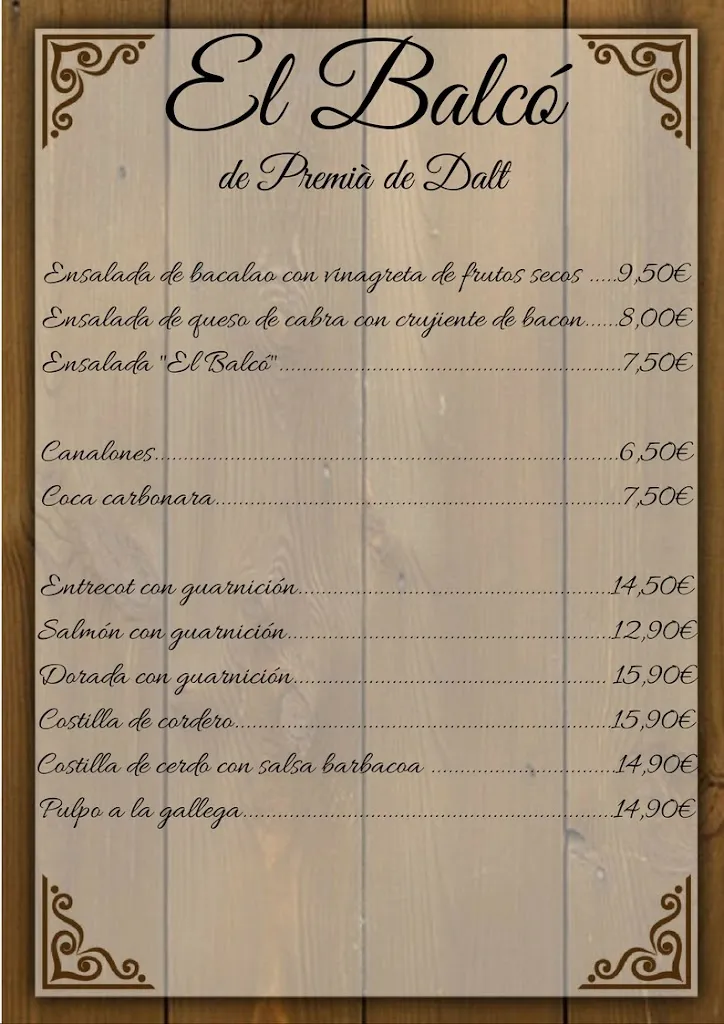 El Balcó
de Premià de Dalt
Ensalada de bacalao con vinagreta de frutos secos .....9,50€
Ensalada de queso de cabra con crujiente de bacon......8,00€
Ensalada "El Balcó"..........................................................7,50€
Canalones...............................................................................6,50€
Coca carbonara.....................................................................7,50€
Entrecot con guarnición.....................................................14,50€
Salmón con guarnición.......................................................12,90€
Dorada con guarnición..................................................... 15,90€
Costilla de cordero................................................................15,90€
Costilla de cerdo con salsa barbacoa ...............................14,90€
Pulpo a la gallega...............................................................14,90€